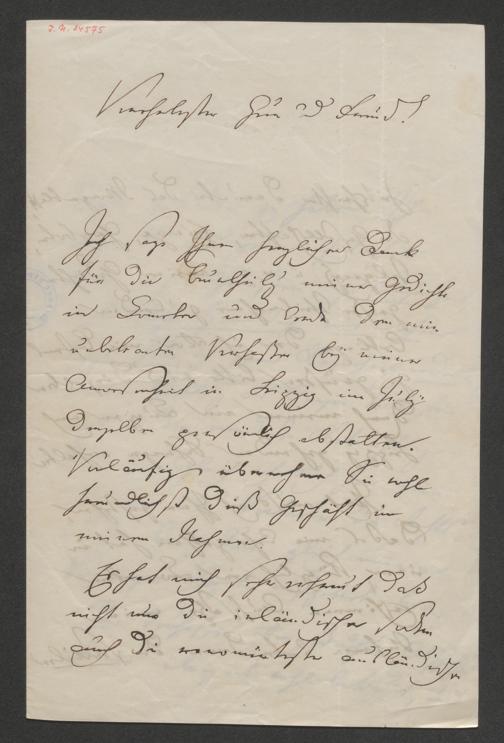 J.N. 84575
Verehrtester Herr und Freund!
Ich sage Ihnen herzlichen Dank
für die Beurtheilg meiner Gedichte
im Kometen und werde dem mir
unbekannten Verfasser bei meiner
Anwesenheit in Leipzig im July
denselben persönlich abstatten.
Vorläufig übernehmen Sie wohl
freundlichst dieß Geschäft in
meinem Nahmen.
Es hat mich sehr erfreut daß
nicht nur die inländischen
auch die renomirteste ausländischen